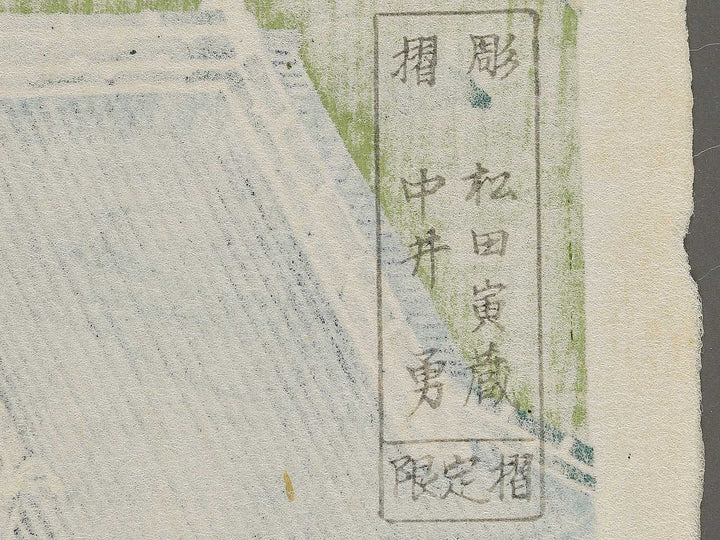 彫 松田寅蔵
摺 中井勇
限定摺